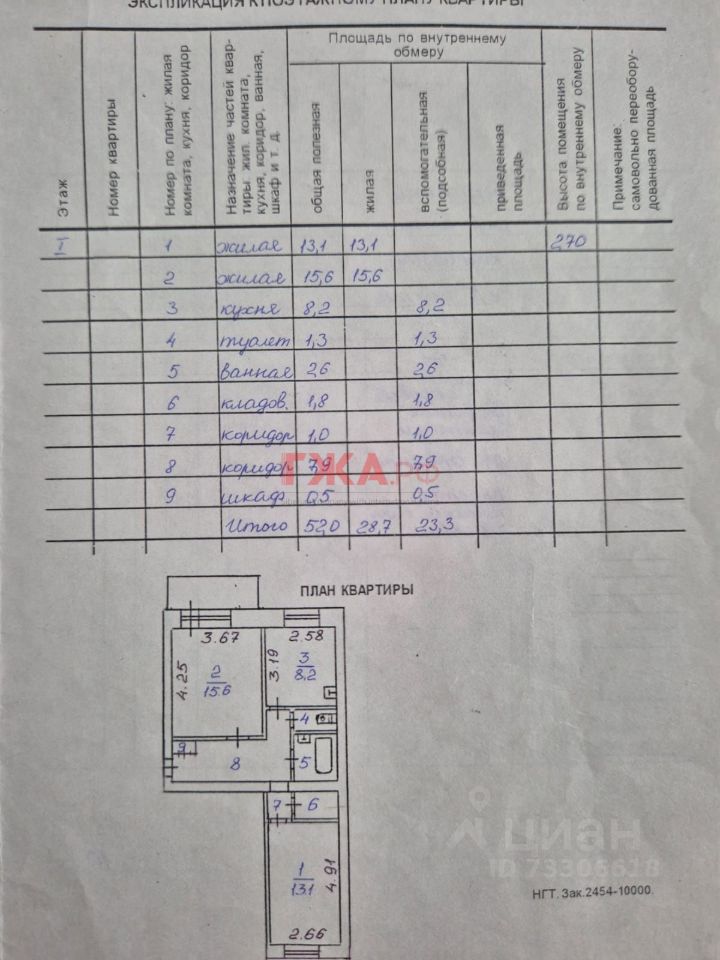 ЭКСПЛИКАЦИЯ К ПОЭТАЖНОМУ ПЛАНУ КВАРТИРЫ
Этаж
Номер квартиры
Номер по плану: жилая
комната, кухня, коридор
Назначение частей квар-
тиры: жил. комната,
кухня, коридор, ванная,
шкаф и т. д.
Площадь по внутреннему
обмеру
общая полезная
жилая
вспомогательная
(подсобная)
приведенная
площадь
Высота помещения
по внутреннему обмеру
Примечание:
самовольно переобору-
дованная площадь
I 1 жилая 13,1 13,1 2,70
2 жилая 15,6 15,6
3 кухня 8,2 8,2
4 туалет 1,3 1,3
5 ванная 2,6 2,6
6 кладов. 1,8 1,8
7 коридор 1,0 1,0
8 коридор 7,9 7,9
9 шкаф 0,5 0,5
Итого 52,0 28,7 23,3
ГЖА.РФ
ПЛАН КВАРТИРЫ
3.67
2.58
4.25
2
15.6
3.19
3
8.2
4
9
8
5
7
6
1
13.1
4.91
2.66
циан
ID 73306618
НГТ. Зак.2454-10000.